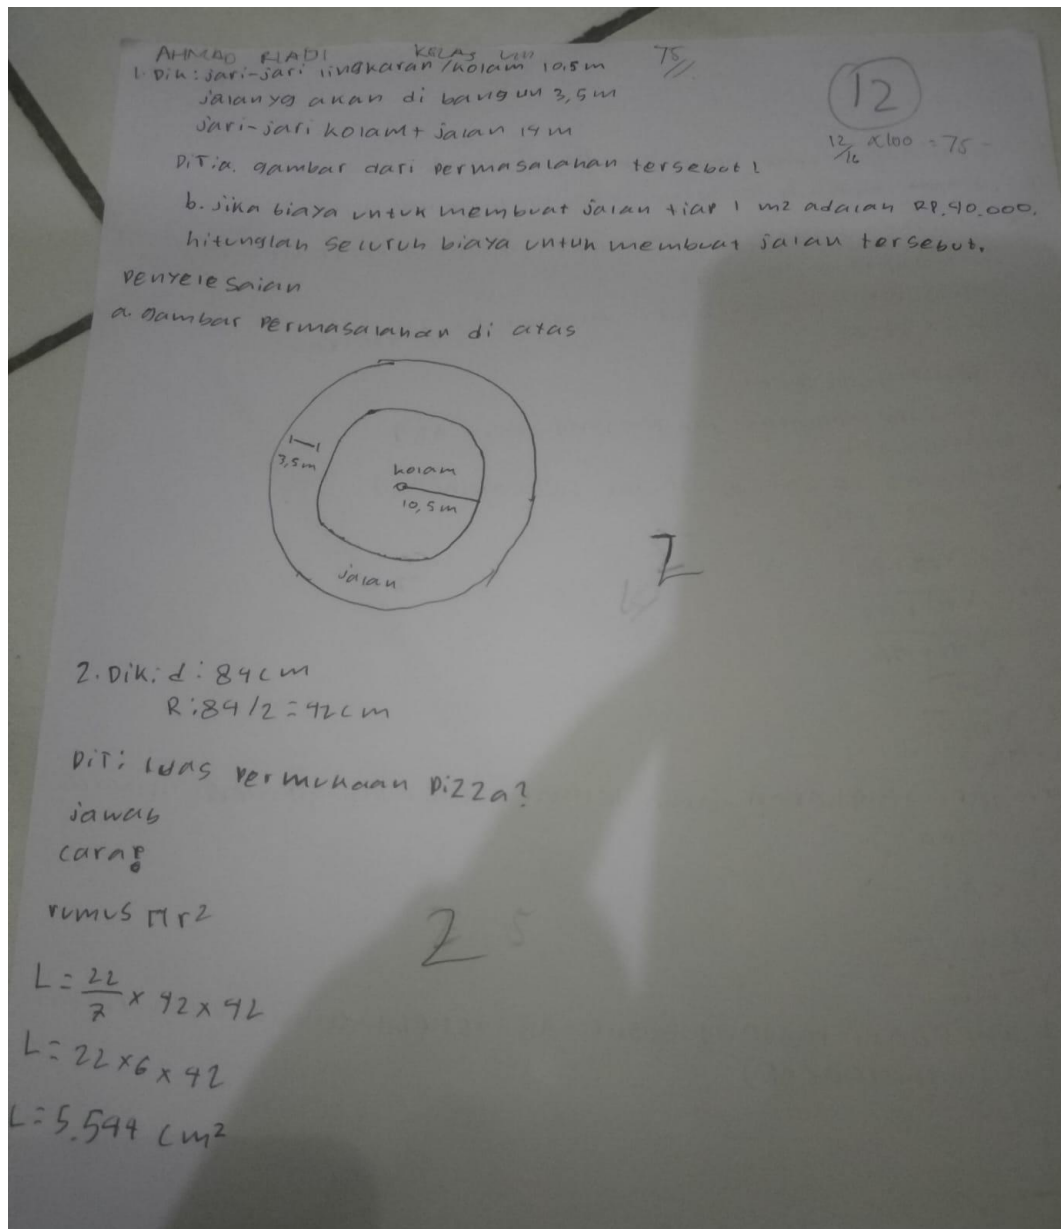 AHMAD RIADI KELAS VIII 75
12
12/16 x100 = 75
1. Dik: Jari-Jari lingkaran/kolam 10,5 m
jalanyg akan di bangun 3,5 m
Jari-jari kolam + jalan 14 m
DiT:a. gambar dari permasalahan tersebut!
b. Jika biaya untuk membuat jalan tiap 1 m2 adalah RP.40.000.
hitunglah seluruh biaya untuk membuat jalan tersebut.
penyelesaian
a. gambar permasalahan di atas
3,5 m
kolam
10,5 m
jalan
2
2. Dik: d: 84 cm
R: 84/2 = 42 cm
DiT: luas permukaan Pizza?
jawab
cara:
rumus πr²
2
L = 22/7 x 42 x 42
L = 22 x 6 x 42
L = 5.544 cm²